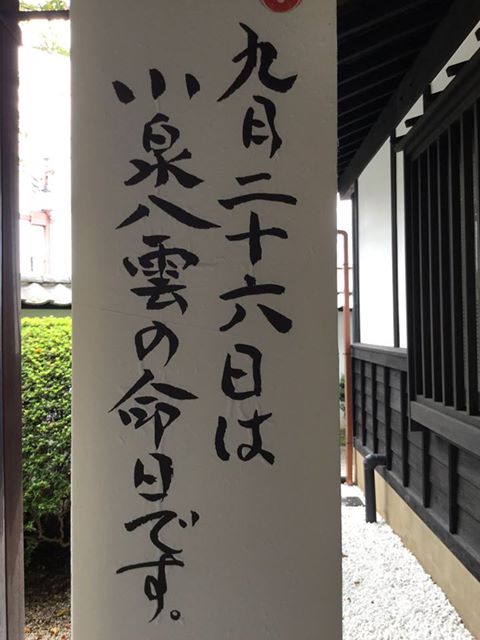 九月二十六日は
小泉八雲の命日です。